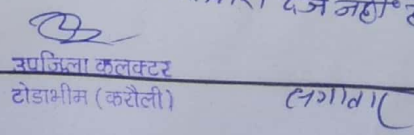 दर्ज नहीं
उपजिला कलक्टर
टोडाभीम (करौली)
लगातार